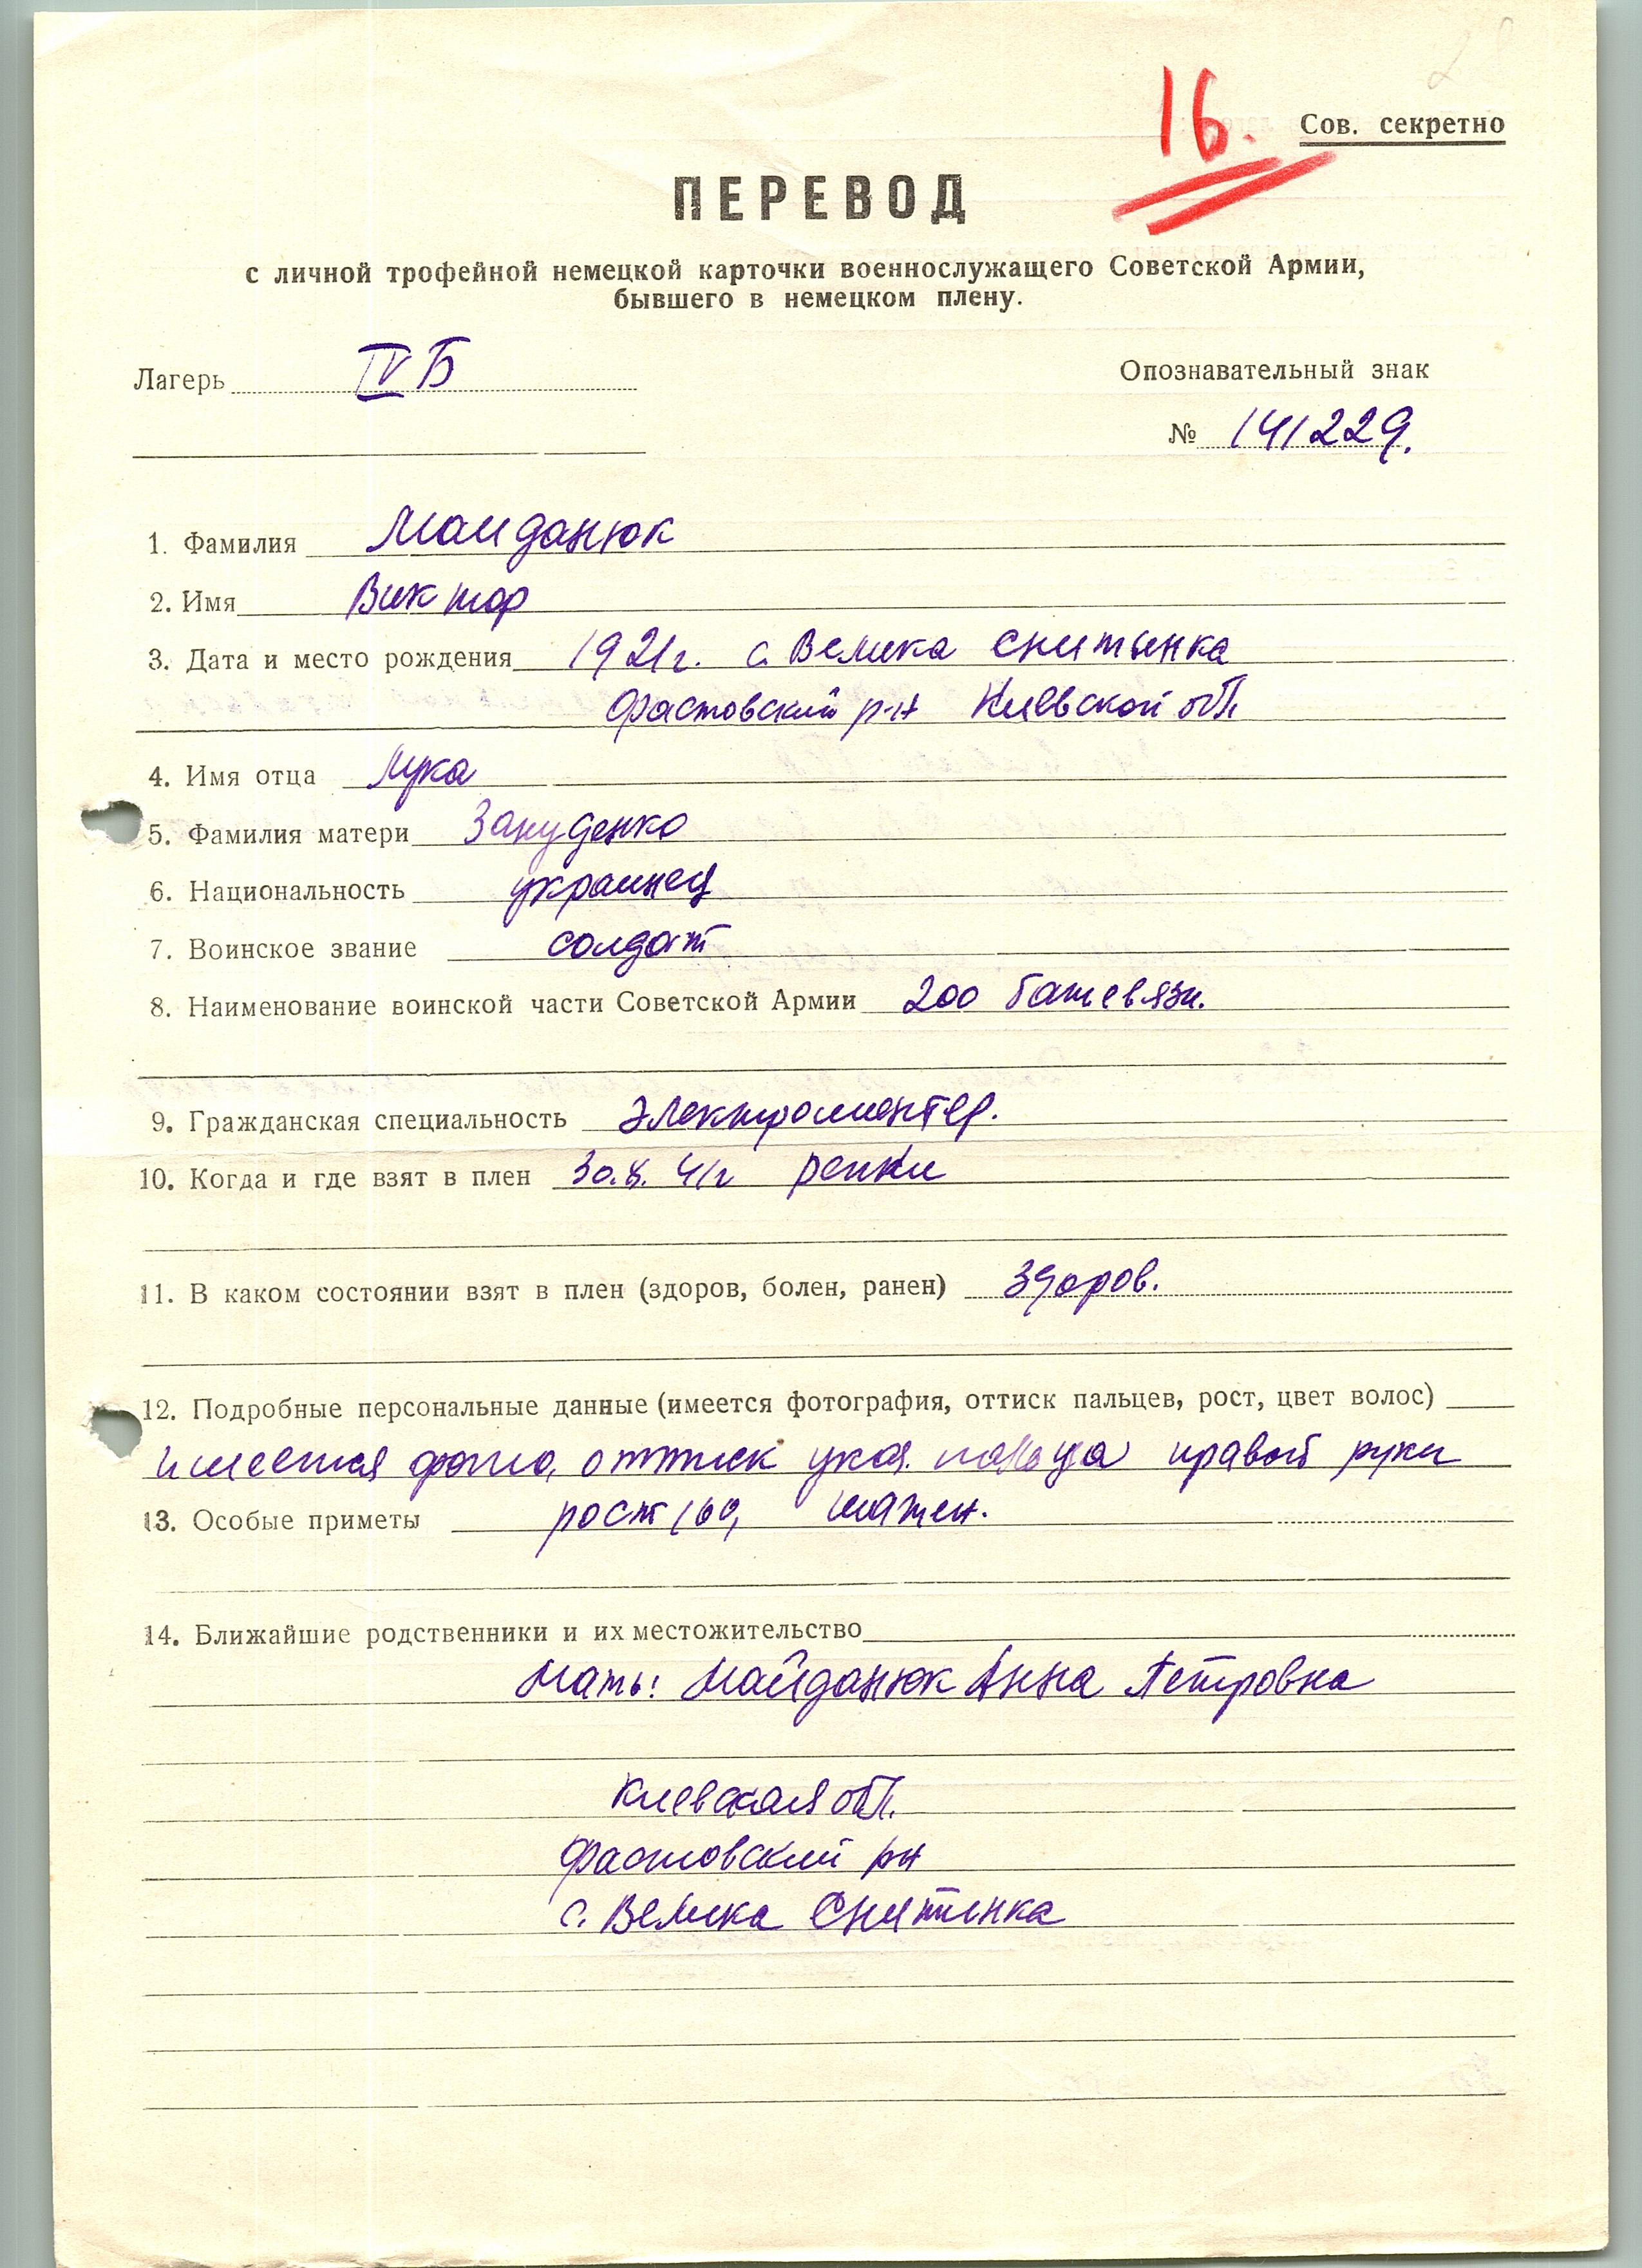 28
16.
Сов. секретно
ПЕРЕВОД
с личной трофейной немецкой карточки военнослужащего Советской Армии,
бывшего в немецком плену.
Лагерь IV Б
Опознавательный знак
№ 141229.
1. Фамилия Майданюк
2. Имя Виктор
3. Дата и место рождения 1921г. с. Велика Снитынка
Фастовский р-н Киевской обл
4. Имя отца Лука
5. Фамилия матери Зануденко
6. Национальность украинец
7. Воинское звание солдат
8. Наименование воинской части Советской Армии 200 бат связи.
9. Гражданская специальность электромонтер.
10. Когда и где взят в плен 30.8. 41г Репки
11. В каком состоянии взят в плен (здоров, болен, ранен) здоров.
12. Подробные персональные данные (имеется фотография, оттиск пальцев, рост, цвет волос)
имеется фото, оттиск указ. пальца правой руки
13. Особые приметы рост 160, шатен.
14. Ближайшие родственники и их местожительство
Мать: Майданюк Анна Петровна
Киевская обл.
Фастовский рн
с. Велика Снитинка